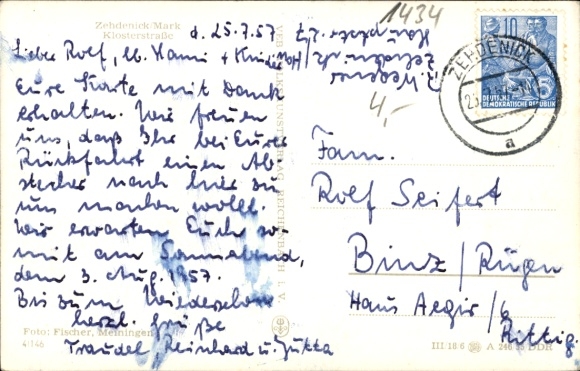 Zehdenick/Mark
Klosterstraße
d. 25.7.57
Lieber Rolf, lb. Hanni + Kinder!
Eure Karte mit Dank
erhalten. Wir freuen
uns, daß Ihr bei Eurer
Rückfahrt einen Ab-
stecher nach hier zu
uns machen wollt.
Wir erwarten Euch so-
mit am Sonnabend,
dem 3. Aug. 1957.
Bis zum Wiedersehen
herzl. Grüße
Traudel, Reinhard u. Jutta
Foto: Fischer, Meiningen
41146
1434
4,-
Zehdenick
ZEHDENICK
a
10
DEUTSCHE
DEMOKRATISCHE REPUBLIK
Fam.
Rolf Seifert
Binz / Rügen
Haus Aegir / b
Rittig.
III 18 6 A 246 55 DDR